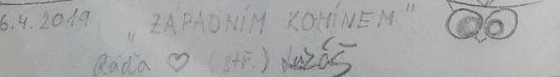 6.4.2019 „ZÁPADNÍM KOMÍNEM"
Ráďa ♡ (stř.)